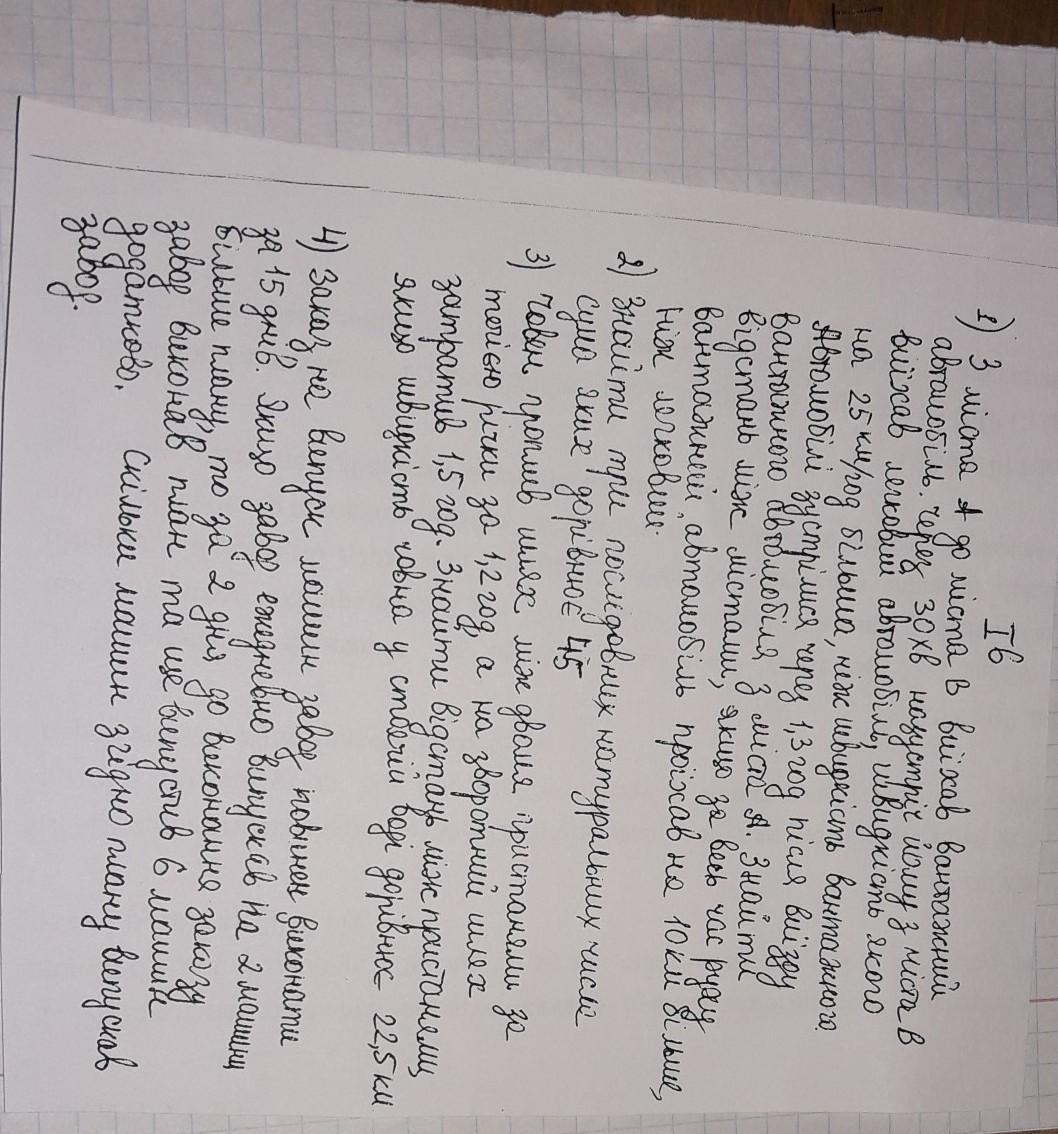 Ів
1) З міста А до міста В виїхав вантажний
автомобіль. Через 30 хв назустріч йому з міста В
виїхав легковий автомобіль, швидкість якого
на 25 км/год більша, ніж швидкість вантажного.
Автомобілі зустрілися через 1,3 год після виїзду
вантажного автомобіля з міста А. Знайти
відстань між містами, якщо за весь час руху
вантажний автомобіль проїхав на 10 км більше,
ніж легковий.
2) Знайти три послідовних натуральних числа
сума яких дорівнює 45
3) Човен проплив шлях між двома пристанями за
течією річки за 1,2 год, а на зворотній шлях
затратив 1,5 год. Знайти відстань між пристанями,
якщо швидкість човна у стоячій воді дорівнює 22,5 км
4) Заказ на випуск машин завод повинен виконати
за 15 днів. Якщо завод ежедневно випускав на 2 машини
більше плану, то за 2 дня до виконання заказу
завод виконав план та ще випустив 6 машин
додатково. Скільки машин згідно плану випускав
завод.